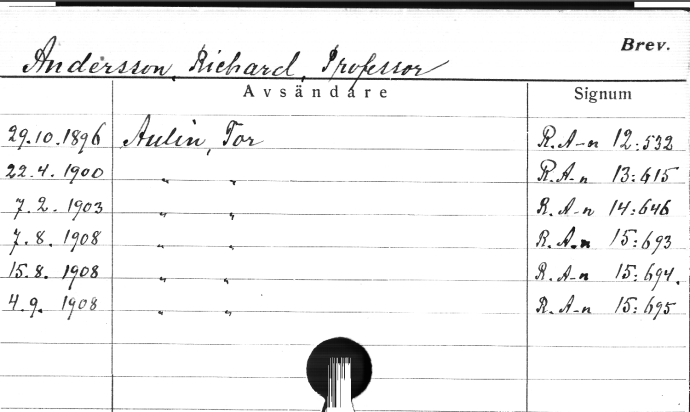 Brev.
Andersson, Richard, Professor
Avsändare Signum
29.10.1896 Aulin, Tor R. A-n 12:532
22.4. 1900 „ „ R. A-n 13:615
7.2. 1903 „ „ R. A-n 14:646
7.8. 1908 „ „ R. A-n 15:693
15.8. 1908 „ „ R. A-n 15:694.
4.9. 1908 „ „ R. A-n 15:695